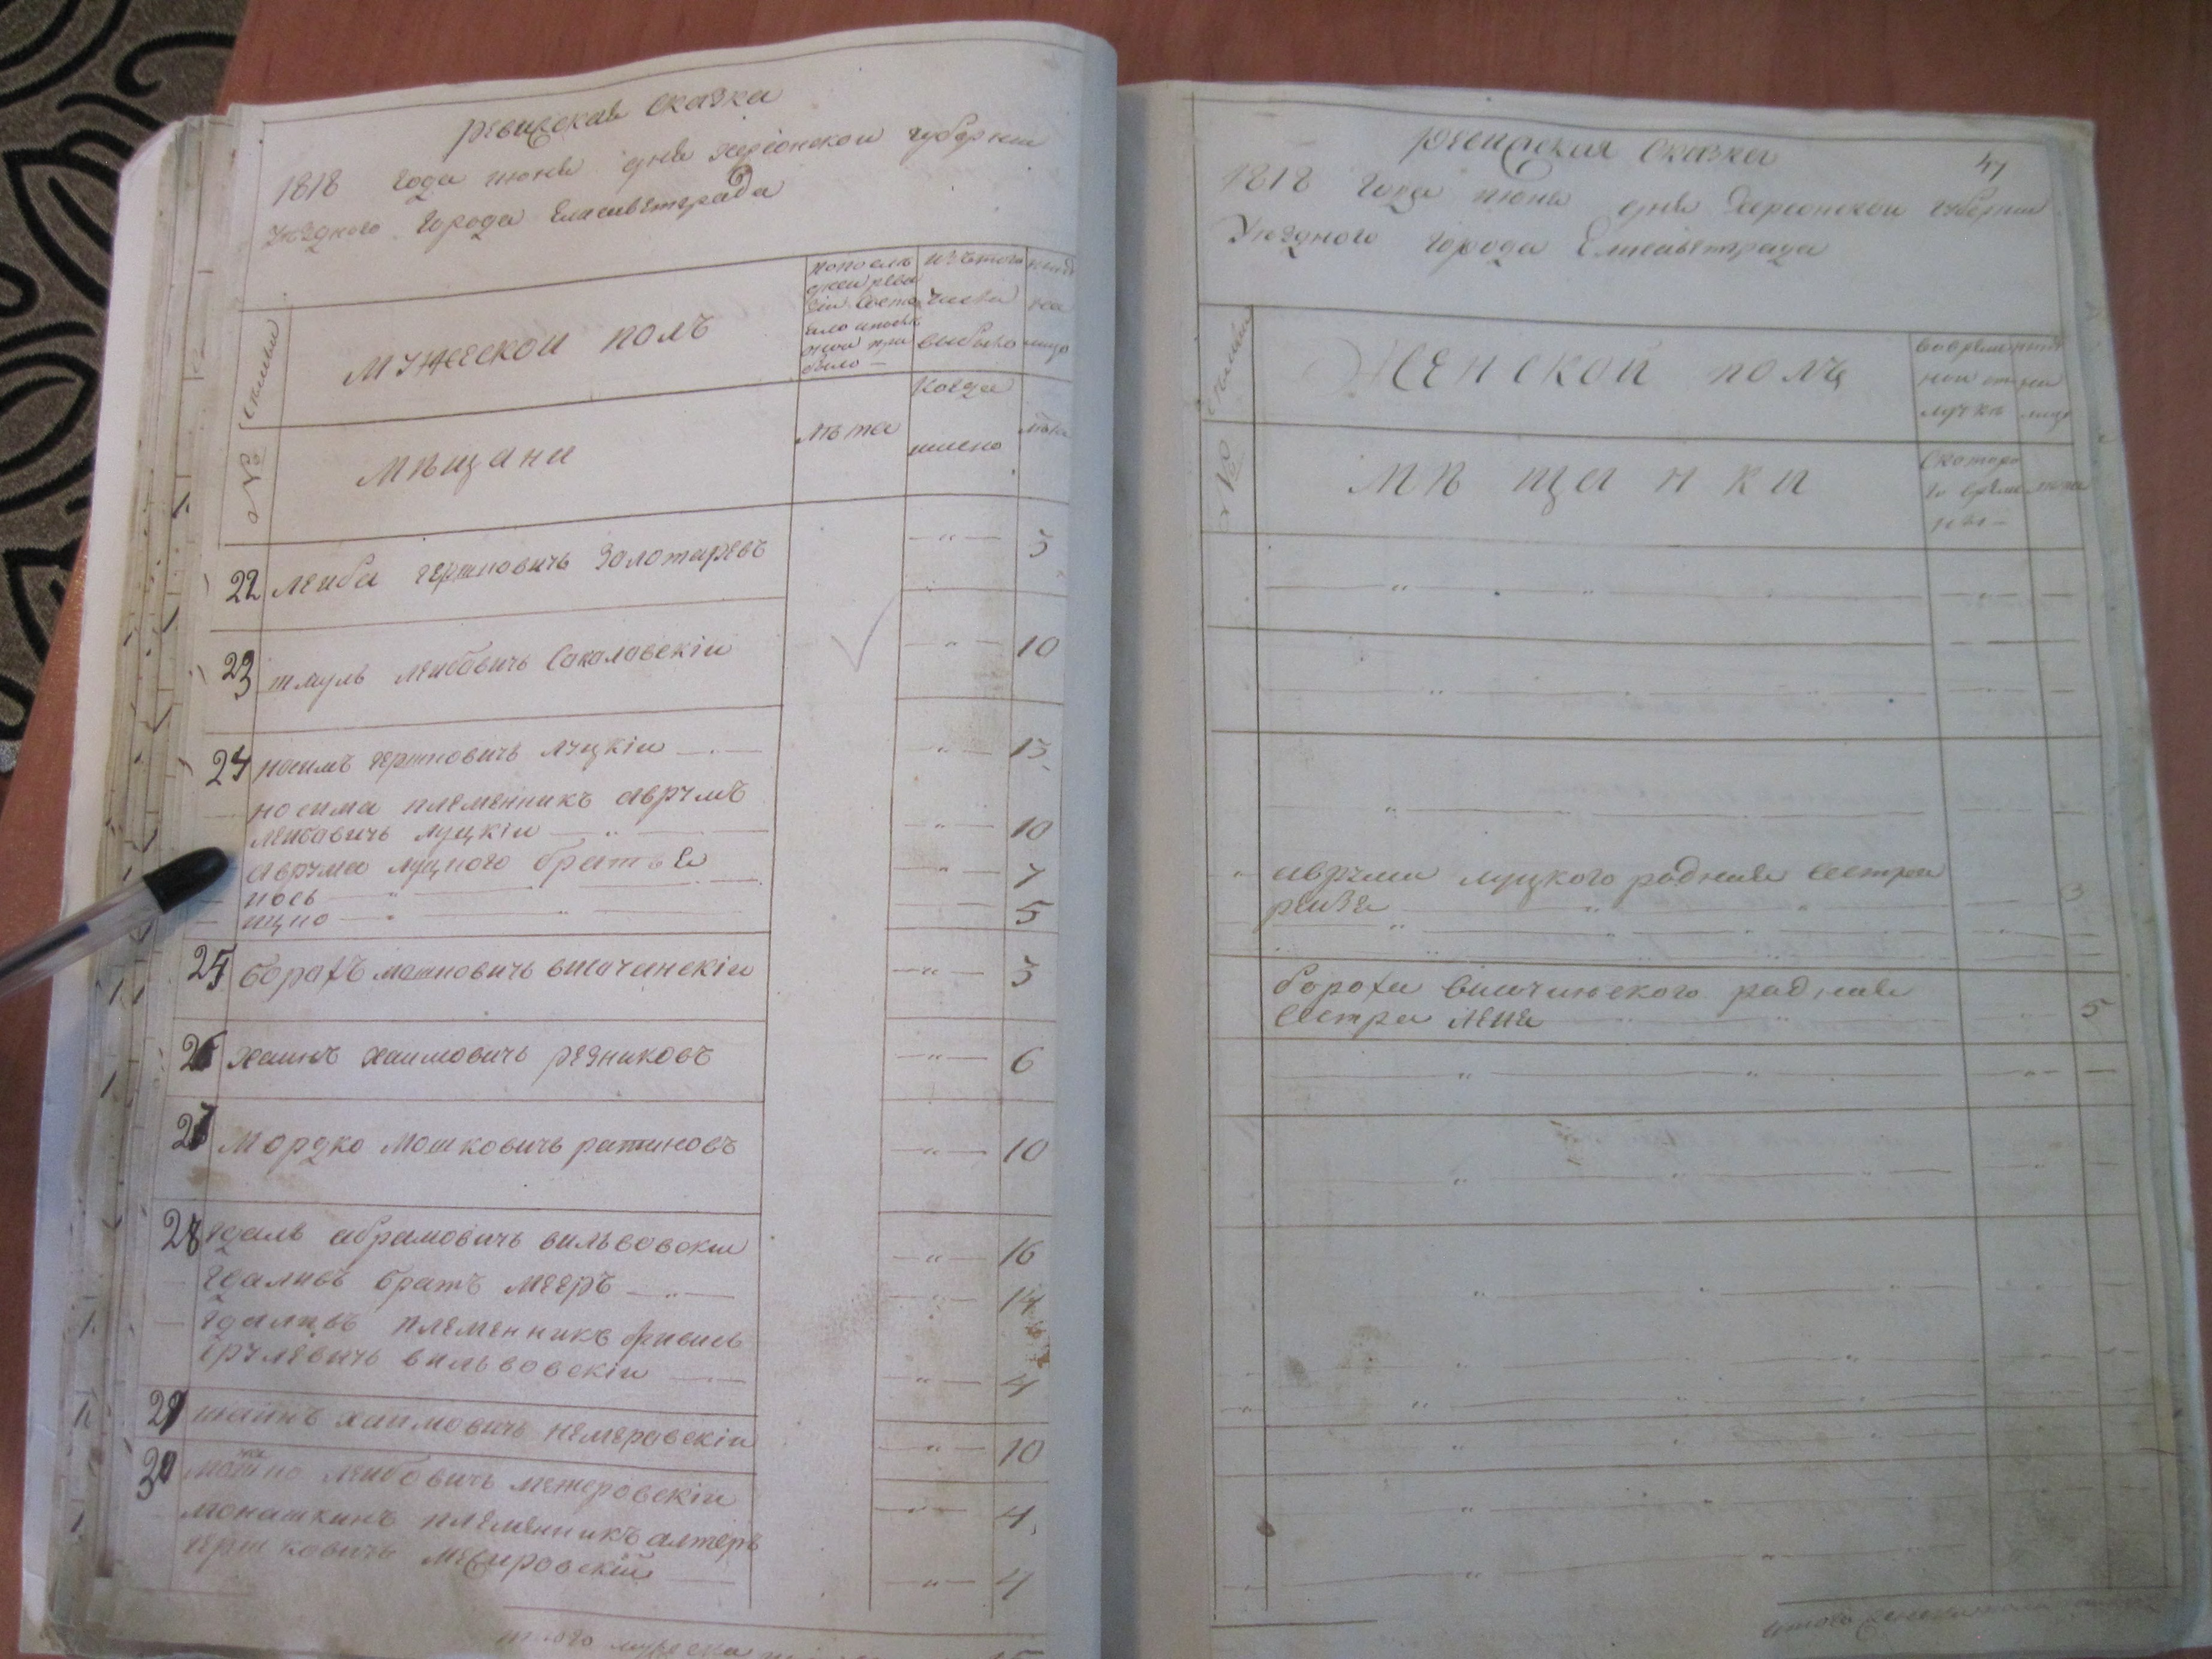 ревизская сказка
1818 года июня дня херсонской губернии
уездного города Елисаветграда
№ семьи
мужеской полъ
по последней ревизіи состояло и после оной прибыло
изътого числа выбыло
ныне на лицо
мѣщани
лѣта
Когда имено
лѣта
22 Лейба гершковичь Золотаревъ 3
23 шмуль лейбовичь Сокаловскіи 10
24 носимъ гершковичь луцкіи 13
носима племенникъ аврумъ
лейбовичь луцкіи 10
аврума луцкого братья
иось 7
ицко 5
25 борохъ мошковичь височинскіи 3
26 хаимъ хаимовичь резниковъ 6
27 Мордко мошковичь 10
28 гдаль абрамовичь вильвовскіи 16
гдаливъ братъ мееръ 14
гдаливъ племенникъ
срулевичь вильвовскіи 4
29 хаимовичь немеравскіи 10
30 лейбовичь межеровскіи 4
монашкинъ племенникъ алтеръ
гершковичь 4
итого мужеска
ревизская сказка
47
1818 года июня дня Херсонской губернии
Уездного города Елисаветграда
№ семьи
Женской полъ
во временной отлучке
ныне на лицо
мѣщанки
Скоторого времени
лѣта
аврума луцкого родная сестра
рейзя 3
бороха височинского родная
сестра лея 5
итого женска пола